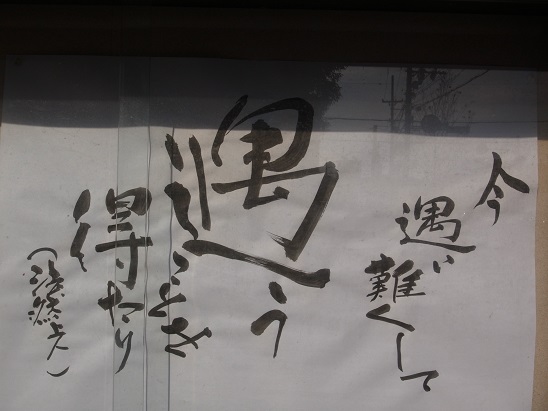 今遇い難くして
遇う
ことを
得たり
(法然上人)